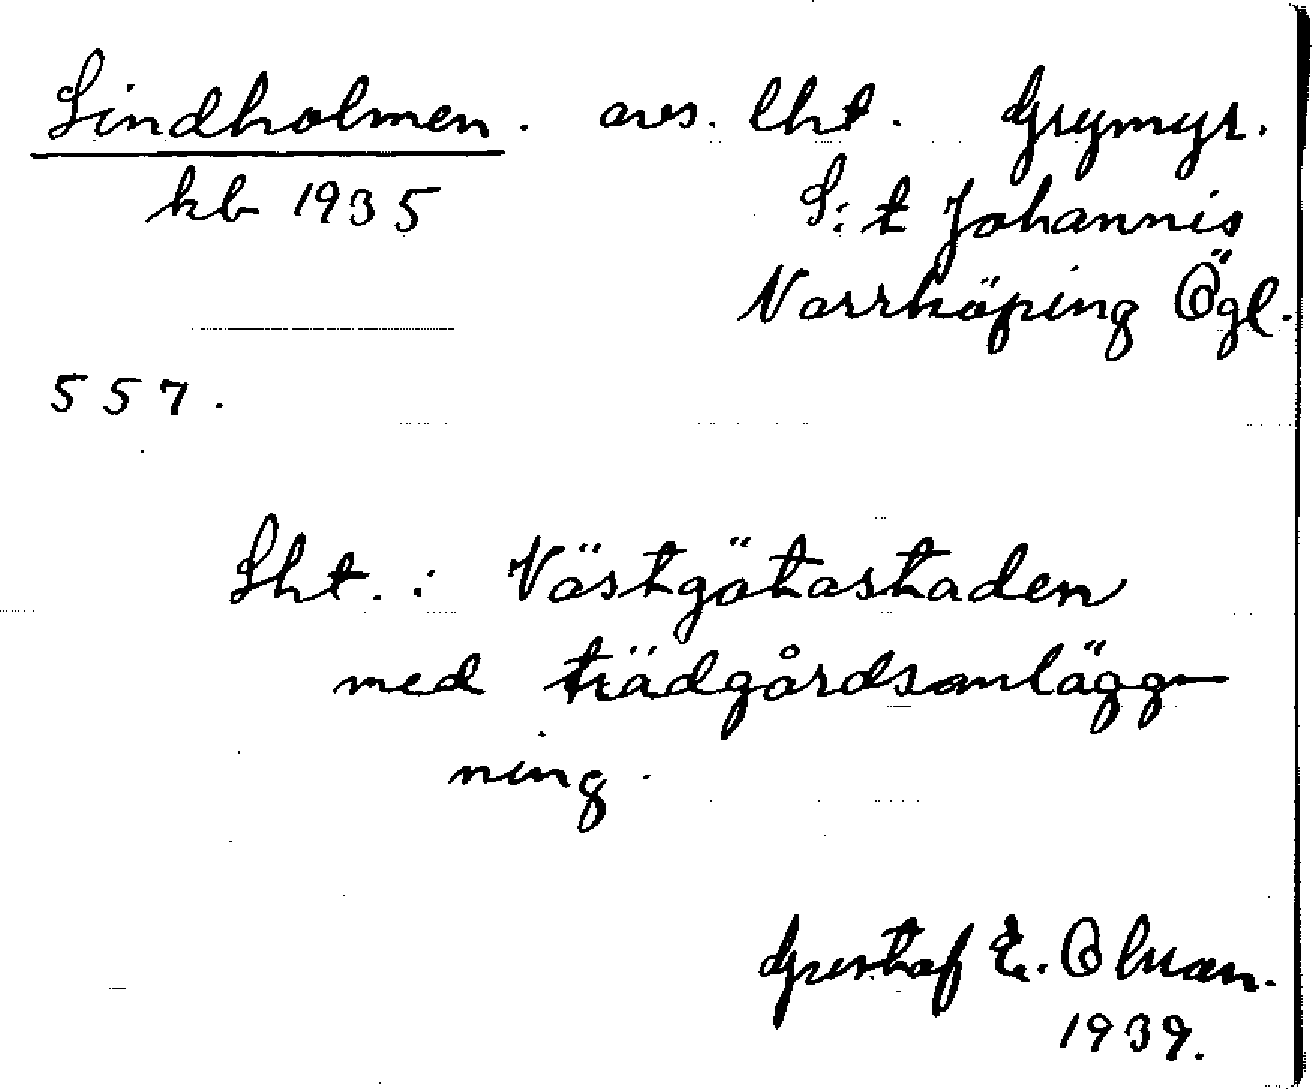 Lindholmen. avs. lht. Grymyr.
kb 1935 S:t Johannis
Norrköping Ögl.
557.
Lht. : Västgötastaden
med trädgårdsanlägg-
ning.
Gustaf E.
1939.